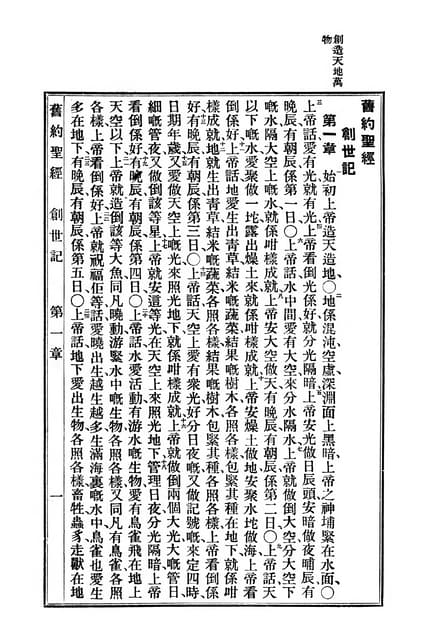 創造天地萬
物
舊約聖經
創世記
第一章 始初上帝造天造地〇地係混沌空虛深淵面上黑暗上帝之神埔緊在水面〇
上帝話愛有光就有光、上帝看倒光係好就分光隔暗、上帝安光做日辰頭安暗做夜晡辰有
晚辰有朝辰係第一日〇上帝話水中間愛有大空來分水隔水、上帝就做倒大空分大空下
嘅水隔大空上嘅水就係咁樣成就、上帝安大空做天有晚辰有朝辰係第二日〇上帝話天
以下嘅水愛聚做一垞露出燥土來就係咁樣成就、上帝安燥土做地安聚水垞做海上帝看
倒係好、上帝話地愛生出青草結米嘅蔬菜結果嘅樹木各照各樣包緊其種在地下就係咁
樣成就、地就生出青草結米嘅蔬菜各照各樣結果嘅樹木包緊其種各照各樣上帝看倒係
好、有晚辰有朝辰係第三日〇上帝話天空上愛有衆光好分日夜嘅又做記號嘅來定四時
日期年歲、又愛做天空上嘅光來照光地下就係咁樣成就、上帝就做倒兩個大光大嘅管日
細嘅管夜又做倒該等星、上帝就安這等光在天空上來照光地下、管理日夜分光隔暗上帝
看倒係好、有晚辰有朝辰係第四日〇上帝話水愛活動有游水嘅生物愛有鳥雀飛在地上
天空以下、上帝就造倒該等大魚同凡曉動游緊水中嘅生物各照各樣又同凡有鳥雀各照
各樣上帝看倒係好、上帝就祝福佢等話愛曉出生越生越多生滿海裏嘅水中鳥雀也愛生
多在地下、有晚辰有朝辰係第五日〇上帝話地下愛出生物各照各樣畜牲蟲豸走獸在地
舊約聖經 創世記 第一章 一